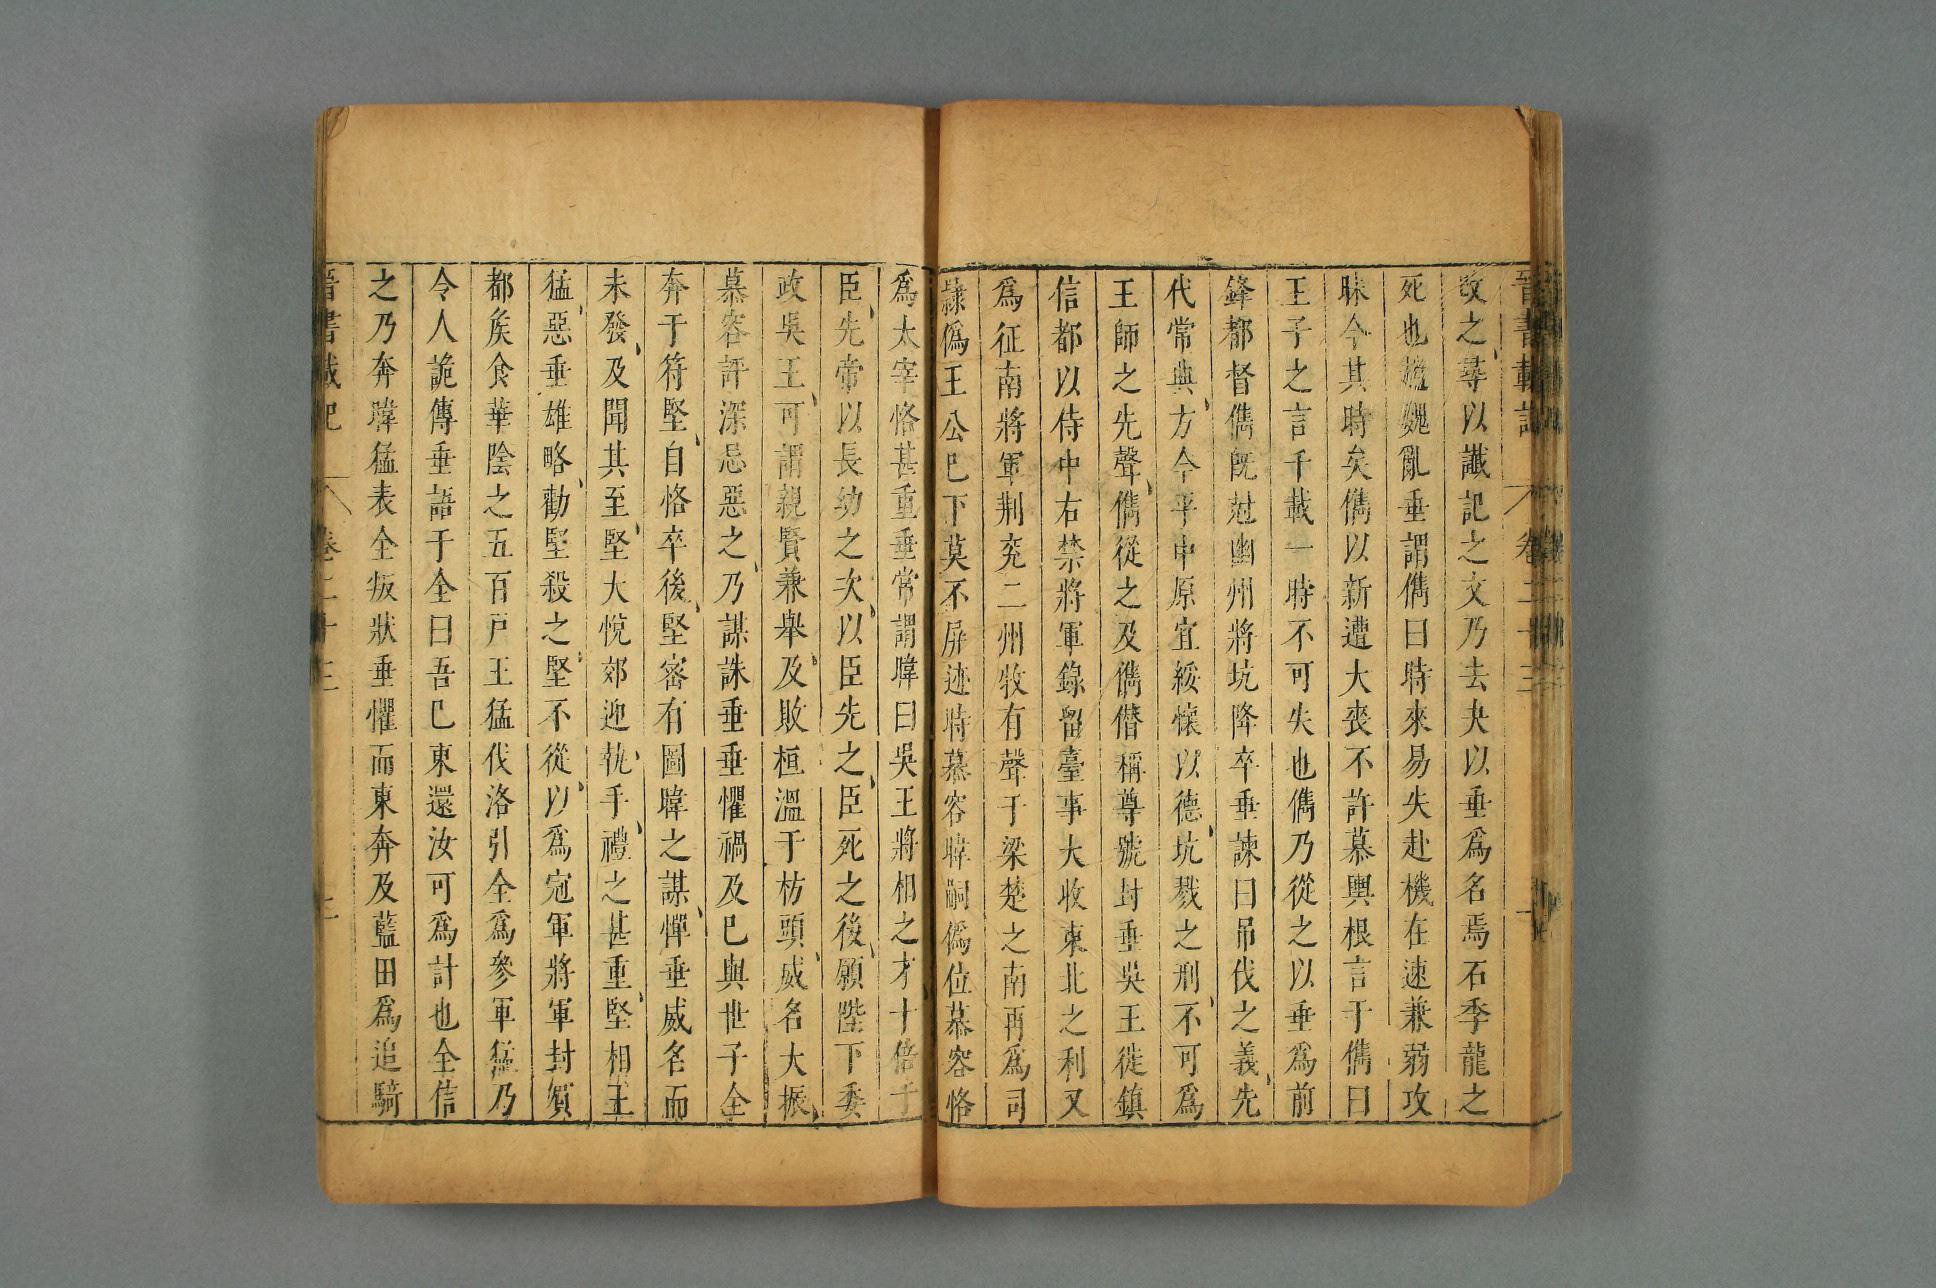 晉書載記 卷二十三
改之尋以讖記之文乃去夬以垂爲名焉石季龍之
死也魏亂垂謂儁曰時來易失赴機在速兼弱攻
昧今其時矣儁以新遭大喪不許慕輿根言于儁曰
王子之言千載一時不可失也儁乃從之以垂爲前
鋒都督儁旣尅幽州將坑降卒垂諫曰吊伐之義先
代常典方今平中原宜綏懷以德坑戮之刑不可爲
王師之先聲儁從之及儁僣稱尊號封垂吳王徙鎮
信都以侍中右禁將軍錄留臺事大收東北之利又
爲征南將軍荆兖二州牧有聲于梁楚之南再爲司
隷僞王公巳下莫不屏迹時慕容暐嗣僞位慕容恪
爲太宰恪甚重垂常謂暐曰吳王將相之才十倍于
臣先帝以長幼之次以臣先之臣死之後願陛下委
政吳王可謂親賢兼舉及敗桓溫于枋頭威名大振
慕容評深忌惡之乃謀誅垂垂懼禍及巳與世子全
奔于符堅自恪卒後堅密有圖暐之謀憚垂威名而
未發及聞其至堅大悅郊迎執手禮之甚重堅相王
猛惡垂雄略勸堅殺之堅不從以爲宼軍將軍封賔
都矦食華陰之五百戸王猛伐洛引全爲參軍猛乃
令人詭傳垂語于全曰吾巳東還汝可爲計也全信
之乃奔暐猛表全叛狀垂懼而東奔及藍田爲追騎
晉書載記 卷二十三